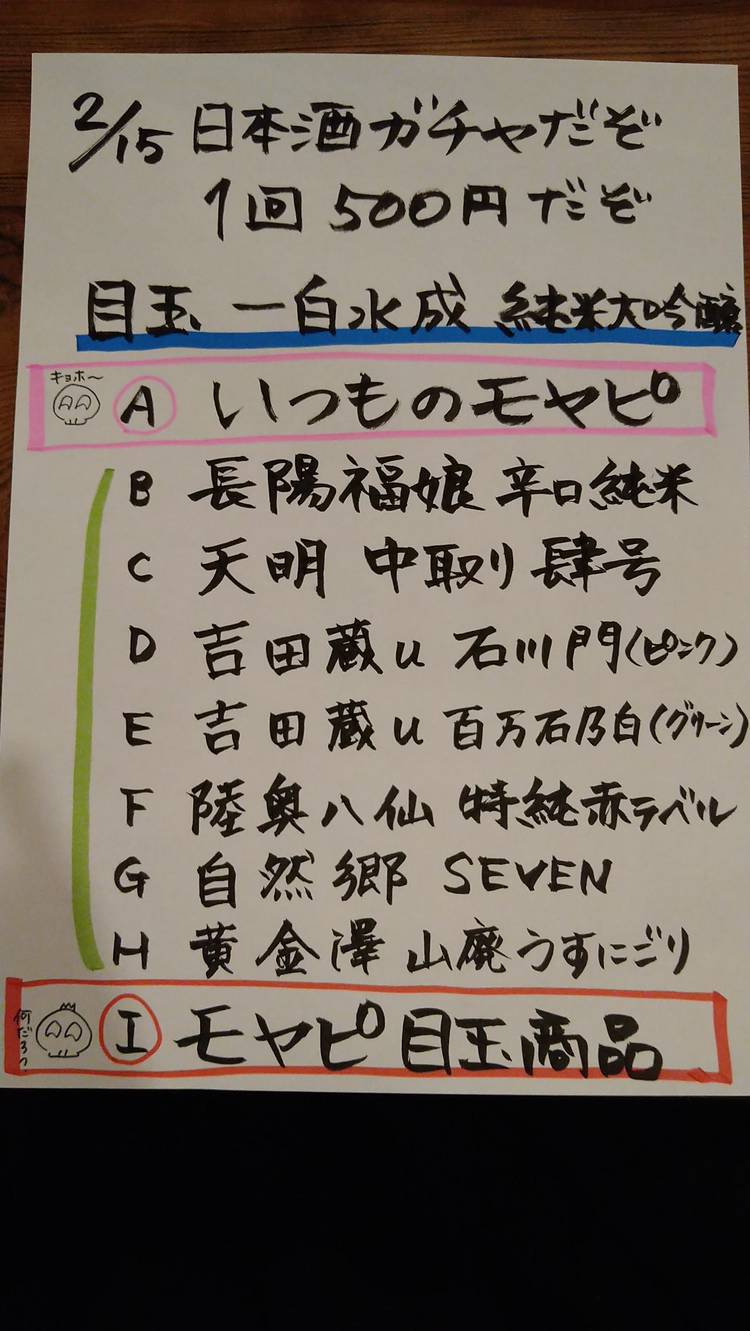 2/15 日本酒ガチャだぞ
1回 500円だぞ
目玉 一白水成 純米大吟醸
キョホ〜
A いつものモヤピ
B 長陽福娘 辛口純米
C 天明 中取り 肆号
D 吉田蔵u 石川門(ピンク)
E 吉田蔵u 百万石乃白(グリーン)
F 陸奥八仙 特純赤ラベル
G 自然郷 SEVEN
H 黄金澤 山廃うすにごり
何だろう
I モヤピ目玉商品